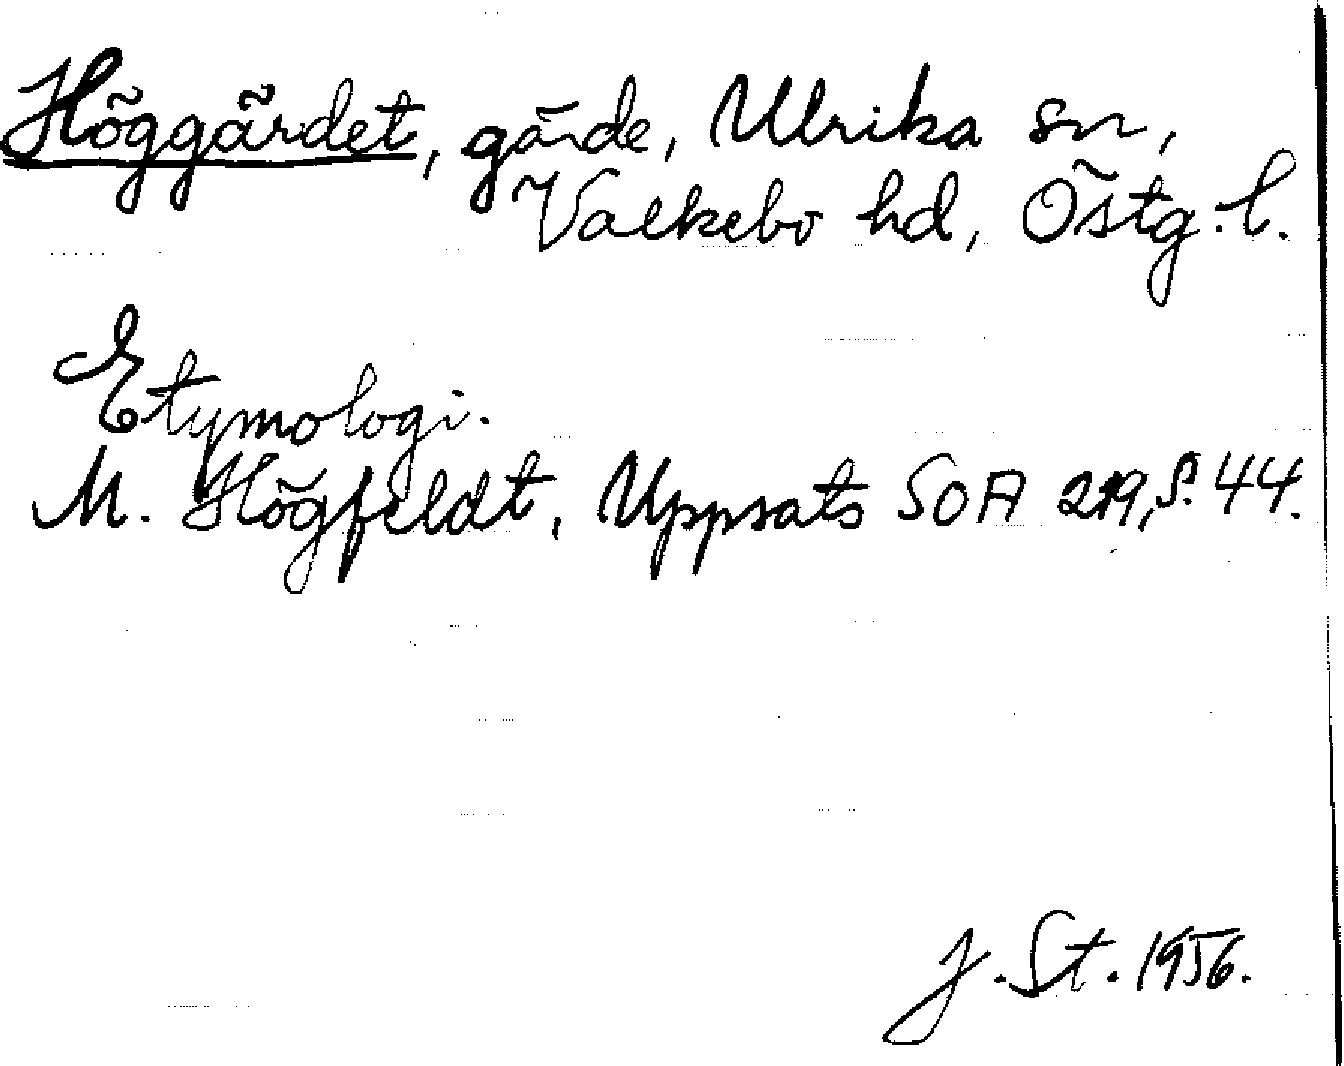 Höggärdet, gärde, Ulrika sn,
Valkebo hd, Östg. l.
Etymologi.
M. Högfeldt, Uppsats SOA 219, s. 44.
J. St. 1956.